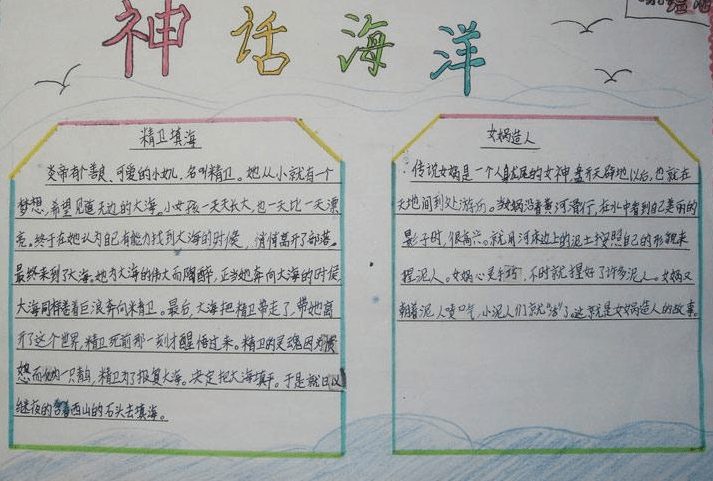 神话海洋
精卫填海
炎帝有个善良、可爱的小女儿,名叫精卫。她从小就有一个
梦想,希望见造无边的大海。小女孩一天天长大,也一天比一天漂
亮。终于在她认为自己有能力找到大海的时候,悄悄离开了部落。
最终来到了大海。她为大海的伟大而陶醉,正当她奔向大海的时候,
大海同样卷着巨浪奔向米精卫。最后,大海把精卫带走了,带她离
开了这个世界,精卫死前那一刻才醒悟过来。精卫的灵魂因为愤
怒而化为一只青鸟,精卫为了报复大海。决定把大海填平。于是就日以
继夜的含着西山的石头去填海。
女娲造人
传说女娲是一个人身龙尾的女神,盘开天辟地以后,她就在
天地间到处游历。当女娲沿着黄河滑行,在水中看到自己美丽的
影子时,很高兴。就用河床边上的泥土按照自己的形貌来
捏泥人。女娲心灵手巧,不时就捏好了许多泥人。女娲又
朝着泥人喷口气,小泥人们就"活"了。这就是女娲造人的故事。